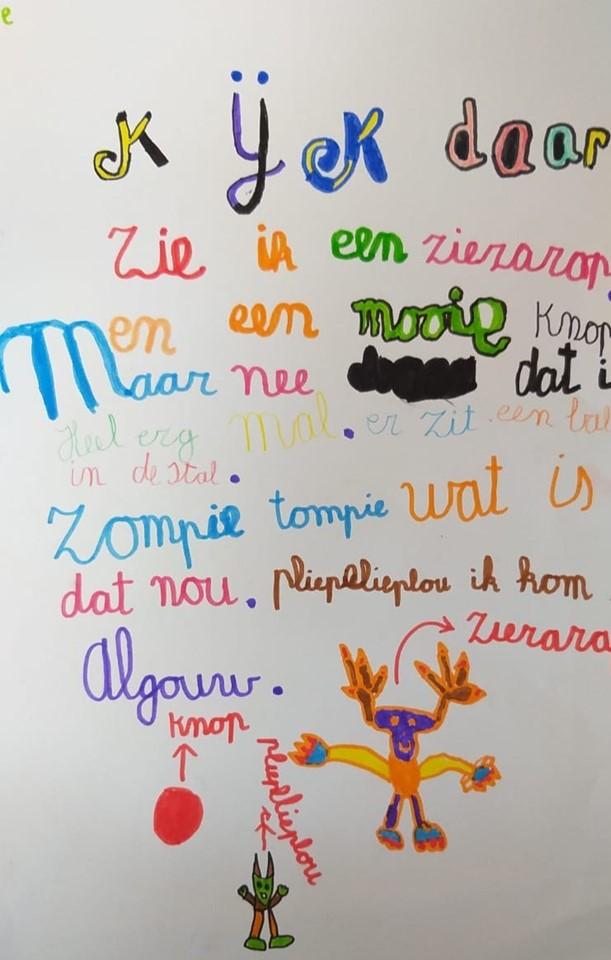 e
kÿk daar
Zie ik een ziezarap
Men een mooie knop
Maar nee dat i
Heel erg mal. er zit een
in de stal.
Zompie tompie wat is
dat nou. pliepelieplou ik kom
Algouw.
knop
pliepelieplou
Ziezara